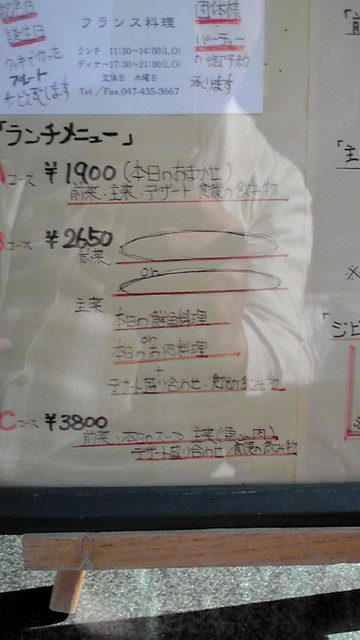 フランス料理
ランチ 11:30~14:00(L.O)
ディナー17:30~21:00(L.O)
定休日 水曜日
Tel./Fax.047-435-3667
記念日
誕生日
プレート
団体様
パーティー
の御予約
承ります
「ランチメニュー」
Aコース ¥1900(本日のおまかせ)
前菜・主菜・デザート 食後の飲み物
Bコース ¥2650
前菜
or
主菜
本日の鮮魚料理
or
本日のお肉料理
+
デザート盛り合わせ・食後の飲み物
Cコース ¥3800
前菜・本日のスープ 主菜(魚or肉)
デザート盛り合わせ 食後の飲み物
「ジビ